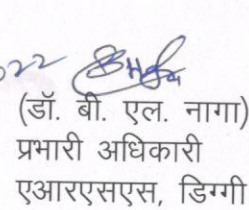 2022
(डॉ. बी. एल. नागा)
प्रभारी अधिकारी
एआरएसएस, डिग्गी